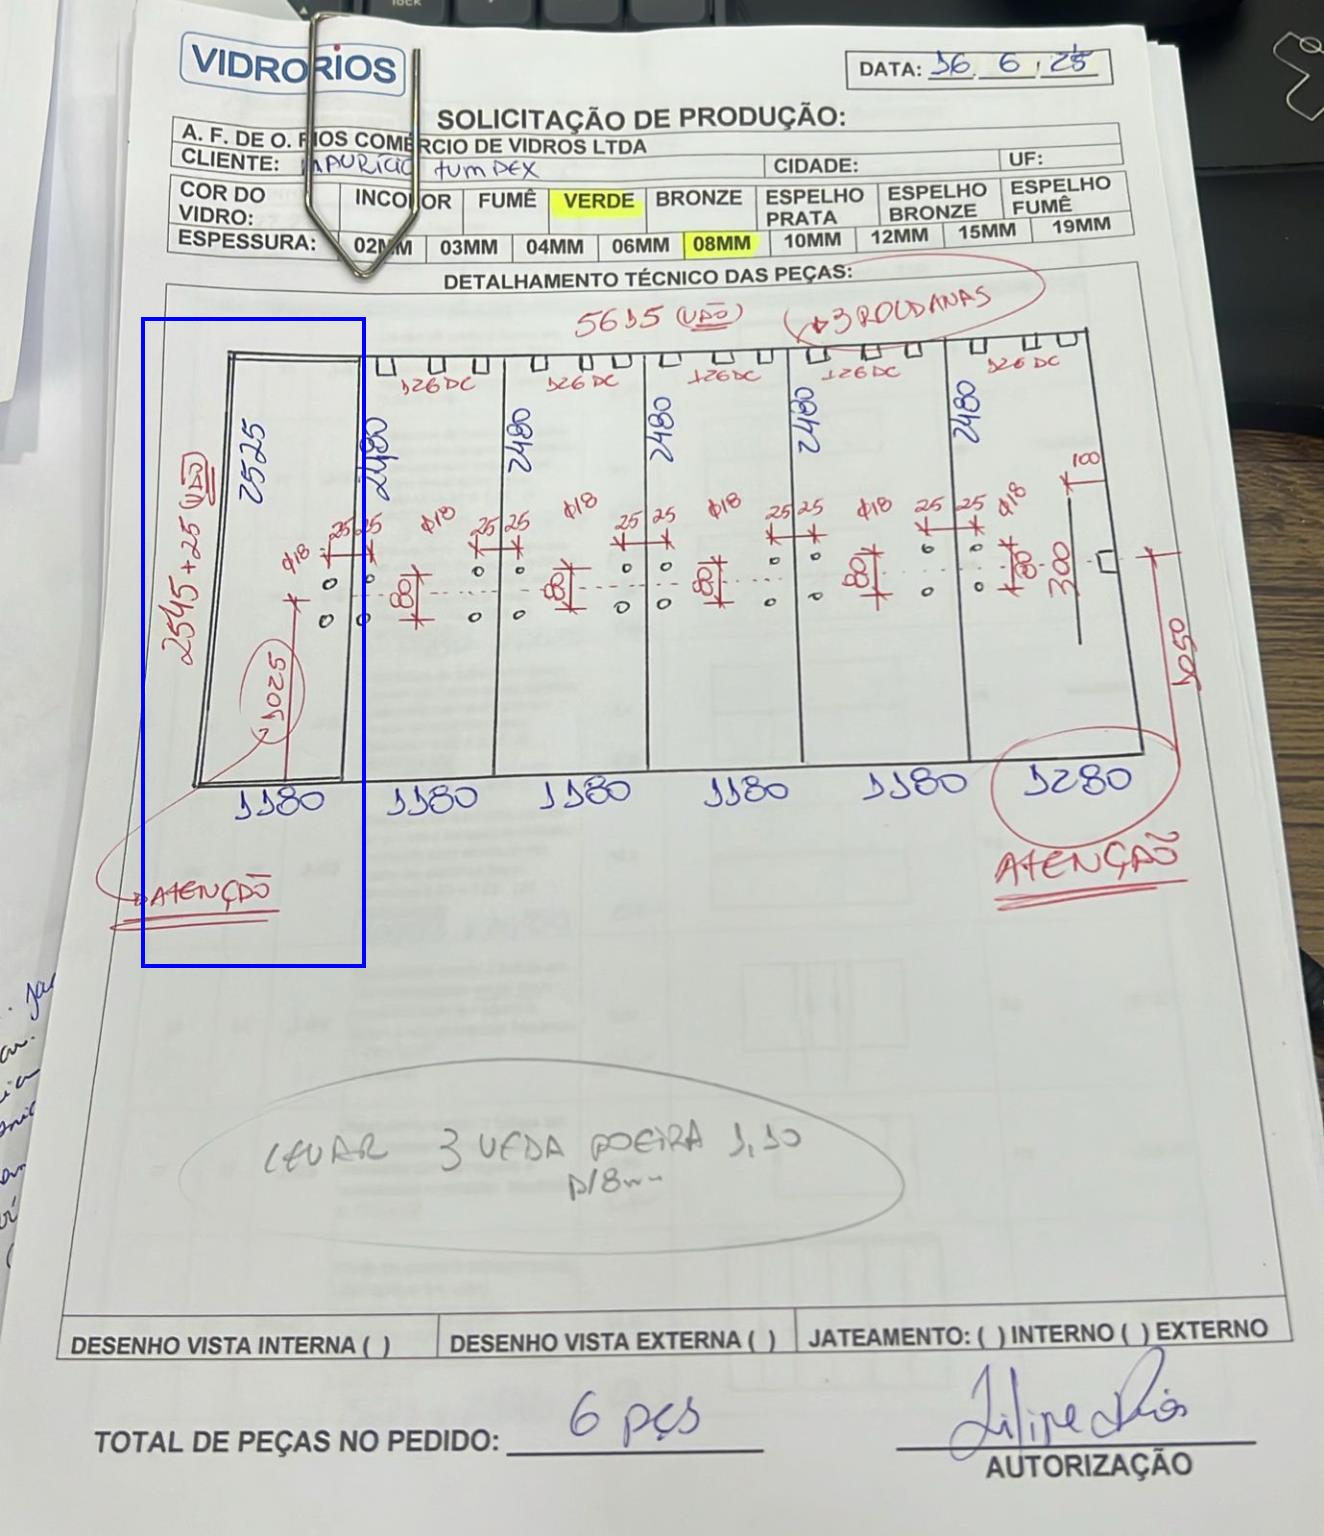 VIDRORIOS
DATA: 16 6 25
SOLICITAÇÃO DE PRODUÇÃO:
A. F. DE O. RIOS COMÉRCIO DE VIDROS LTDA
CLIENTE: MAURICIO tumDEX CIDADE: UF:
COR DO VIDRO: INCOLOR FUMÊ VERDE BRONZE ESPELHO PRATA ESPELHO BRONZE ESPELHO FUMÊ
ESPESSURA: 02MM 03MM 04MM 06MM 08MM 10MM 12MM 15MM 19MM
DETALHAMENTO TÉCNICO DAS PEÇAS:
5615 (VÃO) 3 ROLDANAS
126 DC 126 DC 126 DC 126 DC 126 DC
2525 2480 2480 2480 2480 2480
2545 + 25 (VÃO)
100
φ18 25 25 φ18 25 25 φ18 25 25 φ18 25 25 φ18 25 25 φ18
80 80 80 80 80 300
1025 1050
1180 1180 1180 1180 1180 1280
ATENÇÃO ATENÇÃO
LEVAR 3 VEDA POEIRA 1,10
P/8mm
DESENHO VISTA INTERNA ( ) DESENHO VISTA EXTERNA ( ) JATEAMENTO: ( ) INTERNO ( ) EXTERNO
TOTAL DE PEÇAS NO PEDIDO: 6 pçs
Filipe Rios
AUTORIZAÇÃO